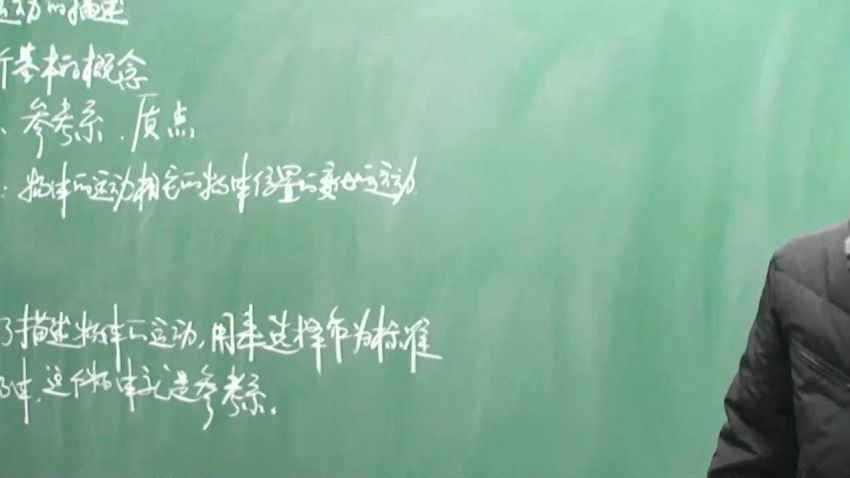 运动的描述
个基本的概念
、参考系、质点
:物体的运动相它的物体位置的变的运动
了描述物体的运动,用来选择作为标准
物体,这个物体就是参考系。